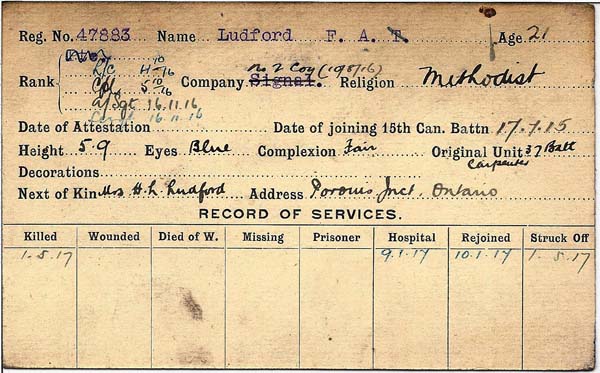 Reg. No. 47883 Name Ludford F. A. T. Age 21
Pte.
Rank L/C 4-10-16 Company Signal. No 2 Coy (19/5/16) Religion Methodist
Cpl 5-10-16
A/Sgt 16.11.16
16-11-16
Date of Attestation Date of joining 15th Can. Battn 17.7.15
Height 5.9 Eyes Blue Complexion Fair Original Unit 37 Batt
Decorations Carpenter
Next of Kin Mrs H. L. Ludford Address Porquis Jnct. Ontario
RECORD OF SERVICES.
Killed Wounded Died of W. Missing Prisoner Hospital Rejoined Struck Off
1-5-17 9.1.17 10.1.17 1-5-17